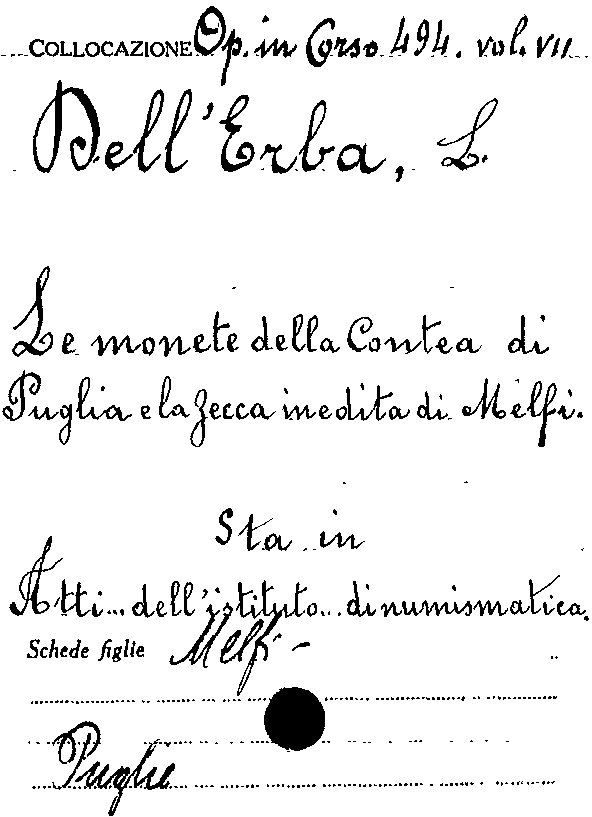 COLLOCAZIONE Op. in Corso 494. vol. VII
Dell'Erba, L.
Le monete della Contea di
Puglia e la zecca inedita di Melfi.
Sta in
Atti... dell'istituto... di numismatica.
Schede figlie Melfi -
Puglie